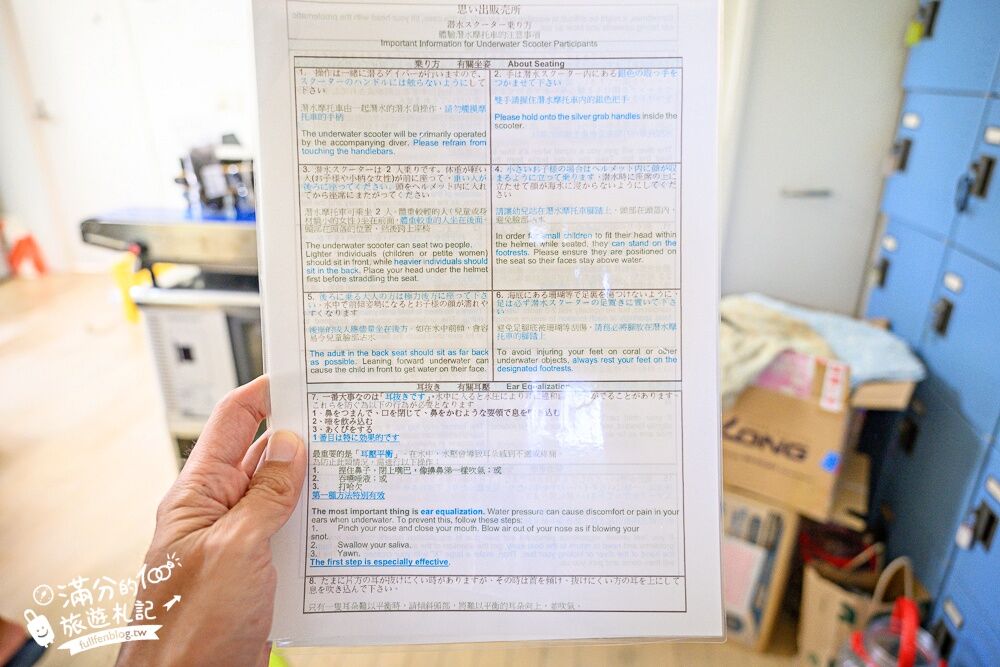 思い出販売所
潜水スクーター乗り方
體驗潛水摩托車的注意事項
Important Information for Underwater Scooter Participants
乗り方 有關坐姿 About Seating
1. 操作は一緒に潜るダイバーが行いますので、
スクーターのハンドルには触らないようにして
下さい
潛水摩托車由一起潛水的潛水員操作，請勿觸摸摩
托車的手柄
The underwater scooter will be primarily operated
by the accompanying diver. Please refrain from
touching the handlebars.
2. 手は潜水スクーター内にある銀色の取っ手を
つかませて下さい
雙手請握住潛水摩托車內的銀色把手
Please hold onto the silver grab handles inside the
scooter.
3. 潜水スクーターは 2 人乗りです。体重が軽い
人(お子様や小柄な女性)が前に座って、重い人が
後ろに座ってください。頭をヘルメット内に入れ
てから座席にまたがってください
潛水摩托車可乘坐 2 人，體重較輕的人(兒童或身
材嬌小的女性)坐在前面，體重較重的人坐在後面。
The underwater scooter can seat two people.
Lighter individuals (children or petite women)
should sit in front, while heavier individuals should
sit in the back. Place your head under the helmet
first before straddling the seat.
4. 小さいお子様の場合はヘルメット内に顔が収
まるように立って乗ります，潜水時に座席の上に
立たせて顔が海水に浸からないようにしてくださ
い
請讓幼兒站在潛水摩托車腳踏上，頭部在頭盔內，
避免臉部沾水
In order for small children to fit their head within
the helmet while seated, they can stand on the
footrests. Please ensure they are positioned on
the seat so their faces stay above water.
5. 後ろに乗る大人の方は極力後方に座って下さ
い，水中で前仰姿勢になるとお子様の顔が濡れや
すくなります
後座的成人應儘量坐在後方，如在水中前傾，會容
易令兒童臉部沾水
The adult in the back seat should sit as far back
as possible. Leaning forward underwater can
cause the child in front to get water on their face.
6. 海底にある珊瑚等で足裏を傷つけないように、
足は必ず潜水スクーターの足置きに置いて下さ
い
避免足腳底被珊瑚等刮傷，請務必將腳放在潛水摩
托車的腳踏上
To avoid injuring your feet on coral or other
underwater objects, always rest your feet on the
designated footrests.
耳抜き 有關耳壓 Ear Equalization
7. 一番大事なのは「耳抜きです」，水中に入ると水圧により
これらを防ぐ為以下の行為が必要となります
1、鼻をつまんで、口を閉じて、鼻をかむような要領で息を吹き込む
2、唾を飲み込む
3、あくびをする
1番目は特に効果的です
最重要的是「耳壓平衡」。在水中，水壓會導致耳朵感到不適或疼痛。
1. 捏住鼻子，閉上嘴巴，像擤鼻涕一樣吹氣；或
2. 吞嚥唾液；或
3. 打哈欠
第一種方法特別有效
The most important thing is ear equalization. Water pressure can cause discomfort or pain in your
ears when underwater. To prevent this, follow these steps:
1. Pinch your nose and close your mouth. Blow air out of your nose as if blowing your
snot.
2. Swallow your saliva.
3. Yawn.
The first step is especially effective.
8. たまに片方の耳が抜けにくい時がありますが、その時は首を傾け、抜けにくい方の耳を上にして
息を吹き込んで下さい。
只有一隻耳朵難以平衡時，請傾斜頭部，將難以平衡的耳朵向上，並吹氣。
LONG
滿分的100
旅遊札記
fullfenblog.tw